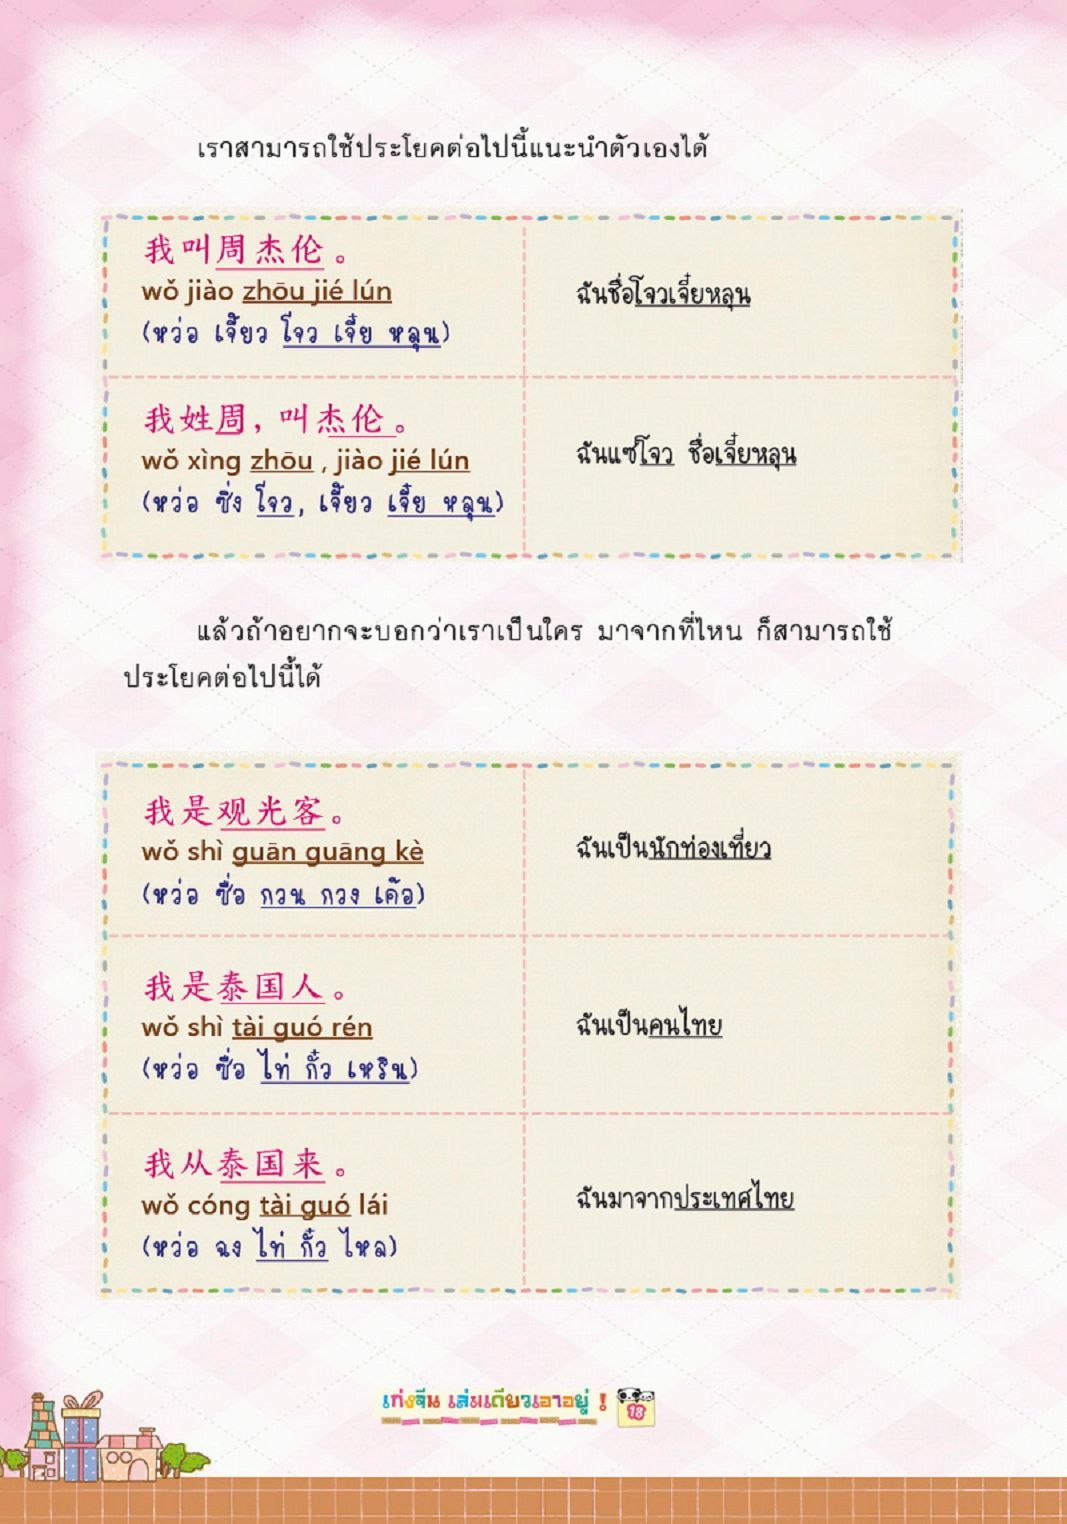 เราสามารถใช้ประโยคต่อไปนี้แนะนำตัวเองได้
我叫周杰伦。
wǒ jiào zhōu jié lún
(หว่อ เจี้ยว โจว เจี๋ย หลุน)
ฉันชื่อโจวเจี๋ยหลุน
我姓周, 叫杰伦。
wǒ xìng zhōu , jiào jié lún
(หว่อ ซิ่ง โจว, เจี้ยว เจี๋ย หลุน)
ฉันแซ่โจว ชื่อเจี๋ยหลุน
แล้วถ้าอยากจะบอกว่าเราเป็นใคร มาจากที่ไหน ก็สามารถใช้
ประโยคต่อไปนี้ได้
我是观光客。
wǒ shì guān guāng kè
(หว่อ ซื่อ กวน กวง เค่อ)
ฉันเป็นนักท่องเที่ยว
我是泰国人。
wǒ shì tài guó rén
(หว่อ ซื่อ ไท่ กั๋ว เหริน)
ฉันเป็นคนไทย
我从泰国来。
wǒ cóng tài guó lái
(หว่อ ฉง ไท่ กั๋ว ไหล)
ฉันมาจากประเทศไทย
เก่งจีน เล่มเดียวเอาอยู่ !
18